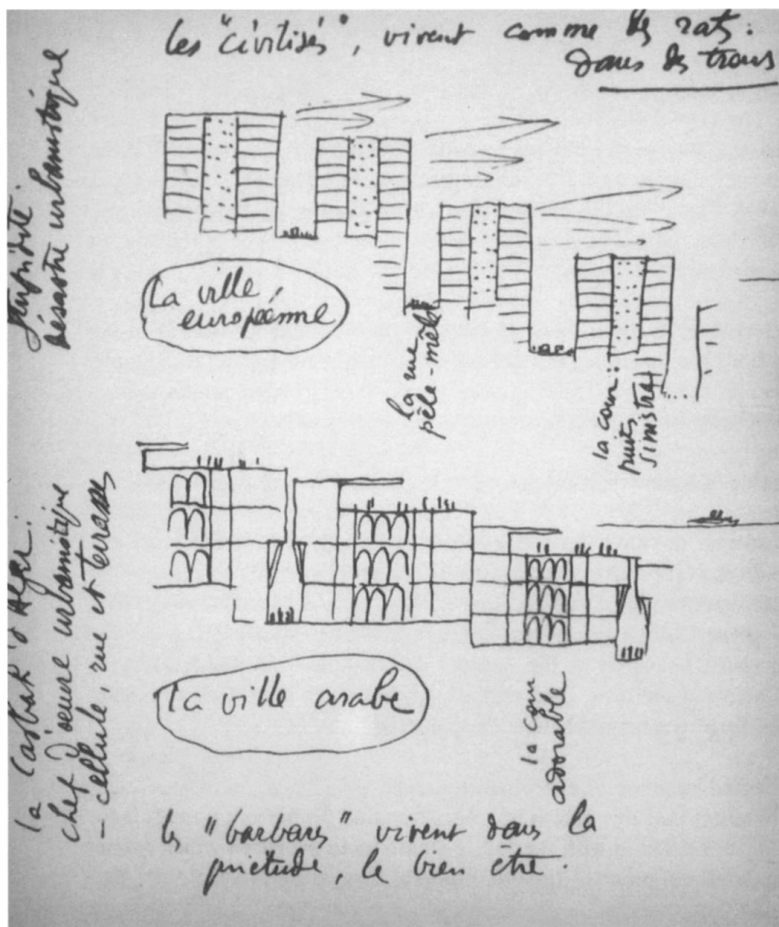 les "civilisés", vivent comme des rats :
dans des trous
stupidité :
désastre urbanistique
La ville
européenne
la rue
pêle-mêle
la cour :
puits
sinistre
la Casbah d'Alger :
chef d'oeuvre urbanistique
- cellule, rue et terrasses
la ville arabe
la cour
adorable
les "barbares" vivent dans la
quiétude, le bien être.